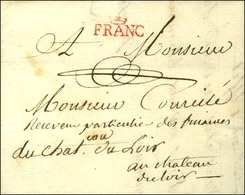 FRANC
A Monsieur
Monsieur
Receveur particulier des finances
du Chat. du Loir
au chateau
du Loir